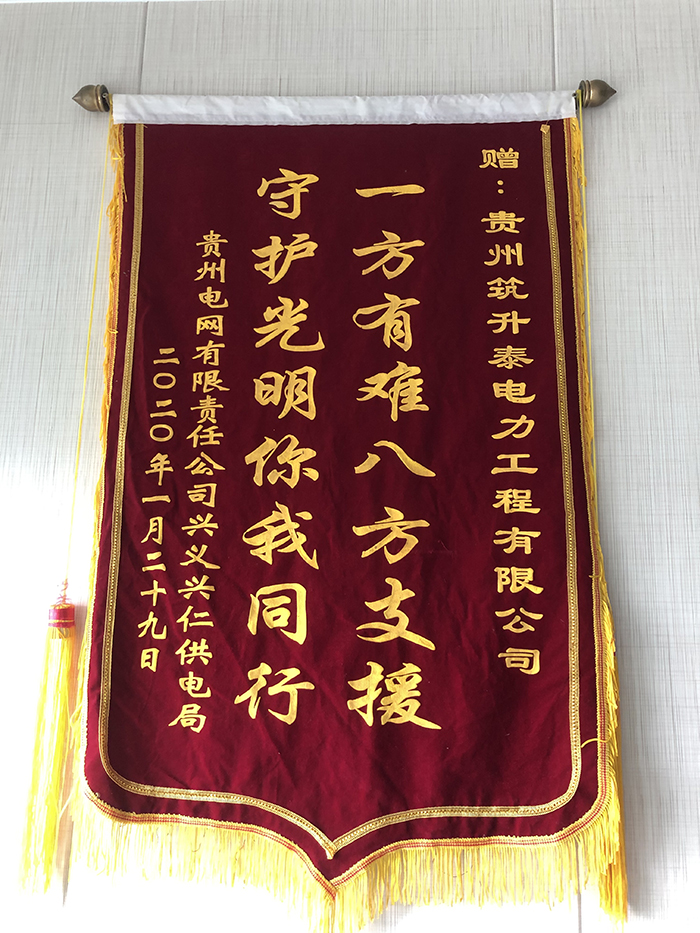 赠：贵州筑升泰电力工程有限公司
一方有难八方支援
守护光明你我同行
贵州电网有限责任公司兴义兴仁供电局
二〇二〇年一月二十九日